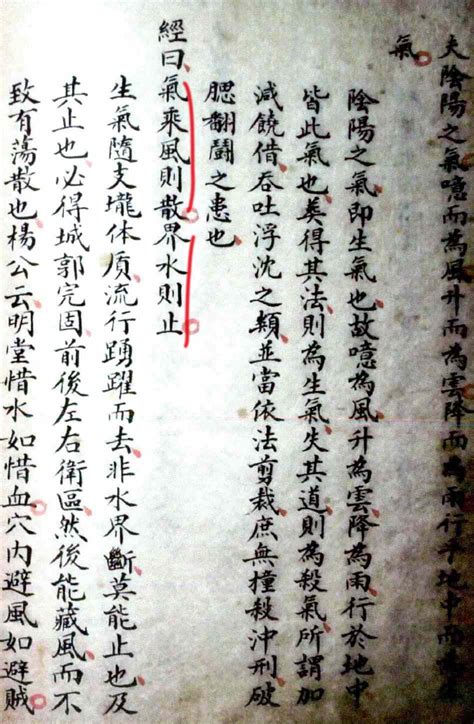 夫陰陽之氣噫而為風升而為雲降而為雨行乎地中而
氣
陰陽之氣即生氣也故噫為風升為雲降為雨行於地中
皆此氣也葬得其法則為生氣失其道則為殺氣所謂加
減饒借吞吐浮沈之類並當依法剪裁庶無撞殺沖刑破
腮翻鬭之患也
經曰氣乘風則散界水則止
生氣隨支壠体质流行踴躍而去非水界斷莫能止也及
其止也必得城郭完固前後左右衛區然後能藏風而不
致有蕩散也楊公云明堂惜水如惜血穴內避風如避賊